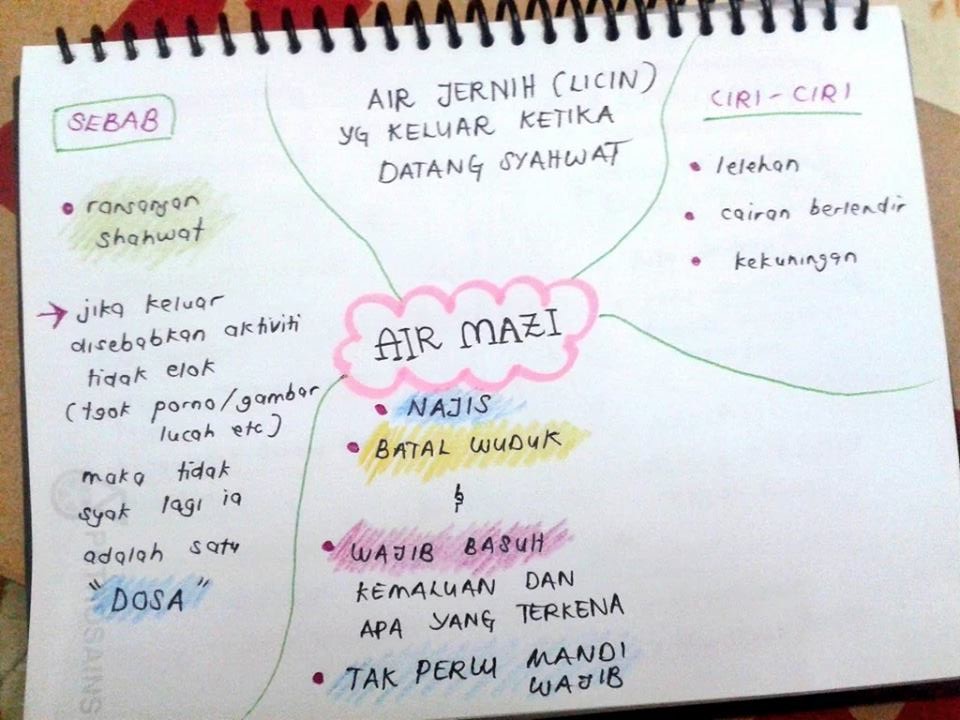 AIR JERNIH (LICIN)
YG KELUAR KETIKA
DATANG SYAHWAT
SEBAB
• ransangan
shahwat
→ jika keluar
disebabkan aktiviti
tidak elok
(tgok porno/gambar
lucah etc)
maka tidak
syak lagi ia
adalah satu
"DOSA"
CIRI-CIRI
• lelehan
• cairan berlendir
• kekuningan
AIR MAZI
• NAJIS
• BATAL WUDUK
&
• WAJIB BASUH
KEMALUAN DAN
APA YANG TERKENA
• TAK PERLU MANDI
WAJIB